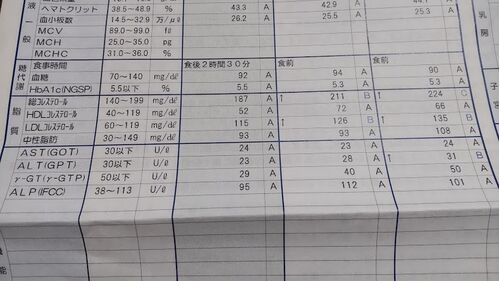 ヘマトクリット 38.5～48.9 % 43.3 A 42.9 A 44.7 A
血小板数 14.5～32.9 万/μℓ 26.2 A 25.5 A 25.3 A
MCV 89.0～99.0 fℓ
MCH 25.0～35.0 pg
MCHC 31.0～36.0 %
食事時間 食後2時間30分 食前 食前
血糖 70～140 mg/dℓ 92 A 94 A 90 A
HbA1c(NGSP) 5.5以下 % 5.5 A 5.3 A 5.3 A
総コレステロール 140～199 mg/dℓ 187 A ↑ 211 B ↑ 224 C
HDLコレステロール 40～119 mg/dℓ 52 A 72 A 66 A
LDLコレステロール 60～119 mg/dℓ 115 A ↑ 126 B ↑ 135 B
中性脂肪 30～149 mg/dℓ 93 A 93 A 108 A
AST(GOT) 30以下 U/ℓ 24 A 23 A 24 A
ALT(GPT) 30以下 U/ℓ 23 A 28 A ↑ 31 B
γ-GT(γ-GTP) 50以下 U/ℓ 29 A 40 A 50 A
ALP(IFCC) 38～113 U/ℓ 95 A 112 A 101 A
液一般
糖代謝
脂質
乳房
子宮
機能